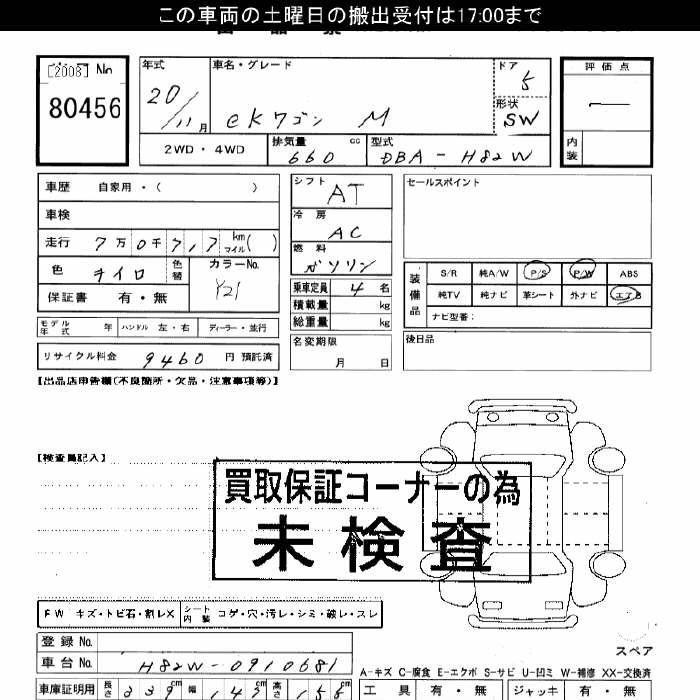 この車両の土曜日の搬出受付は17:00まで
[2008] No
80456
年式 20/11月
車名・グレード
eKワゴン M
ドア 5
形状 SW
評価点
内装
2WD・4WD
排気量 660 cc
型式 DBA-H82W
車歴 自家用・( )
車検
走行 7万0千717 km マイル( )
色 キイロ 色替
カラーNo. Y21
保証書 有・無
モデル年式 年 ハンドル 左・右 ディーラー・並行
リサイクル料金 9460 円 預託済
シフト AT
冷房 AC
燃料 ガソリン
乗車定員 4 名
積載量 kg
総重量 kg
名変期限 月 日
セールスポイント
装備品
S/R 純A/W P/S P/W ABS
純TV 純ナビ 革シート 外ナビ エアB
ナビ型番:
後日品
【出品店申告欄(不良箇所・欠品・注意事項等)】
【検査員記入】
買取保証コーナーの為
未検査
FW キズ・トビ石・割レX
シート内装 コゲ・穴・汚レ・シミ・破レ・スレ
登録 No.
車台 No. H82W-0910681
スペア
A-キズ C-腐食 E-エクボ S-サビ U-凹ミ W-補修 XX-交換済
車庫証明用 長さ 339cm 幅 147cm 高さ 155cm
工具 有・無 ジャッキ 有・無